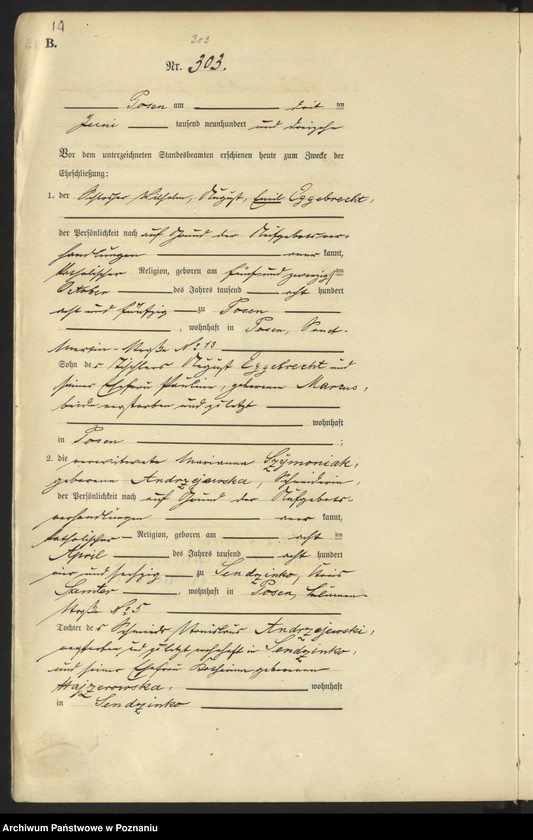 14
B.
303
Nr. 303.
Posen am dritten
Juni tausend neunhundert und dreizehn
Vor dem unterzeichneten Standesbeamten erschienen heute zum Zwecke der
Eheschließung:
1. der Schlosser Wilhelm, August, Emil Eggebrecht,
der Persönlichkeit nach auf Grund der Aufgebotsver-
handlungen aner kannt,
katholischer Religion, geboren am fünfundzwanzigsten
October des Jahres tausend acht hundert
acht und fünfzig zu Posen
, wohnhaft in Posen, Sanct-
Martin-Straße No 13
Sohn des Tischlers August Eggebrecht und
seiner Ehefrau Pauline, geborene Marcus,
beide verstorben und zuletzt
wohnhaft
in Posen ;
2. die verwitwete Marianna Szymoniak,
geborene Andrzejewska, Schneiderin,
der Persönlichkeit nach auf Grund der Aufgebots-
verhandlungen aner kannt,
katholischer Religion, geboren am acht ten
April des Jahres tausend acht hundert
vier und sechzig zu Sendzinko, Kreis
Samter , wohnhaft in Posen,
Straße No 5
Tochter des Schmieds Stanislaus Andrzejewski,
verstorben und zuletzt wohnhaft in Sendzinko,
und seiner Ehefrau Katharina geborenen
Hajzerowska, wohnhaft
in Sendzinko
Archiwum Państwowe w Poznaniu